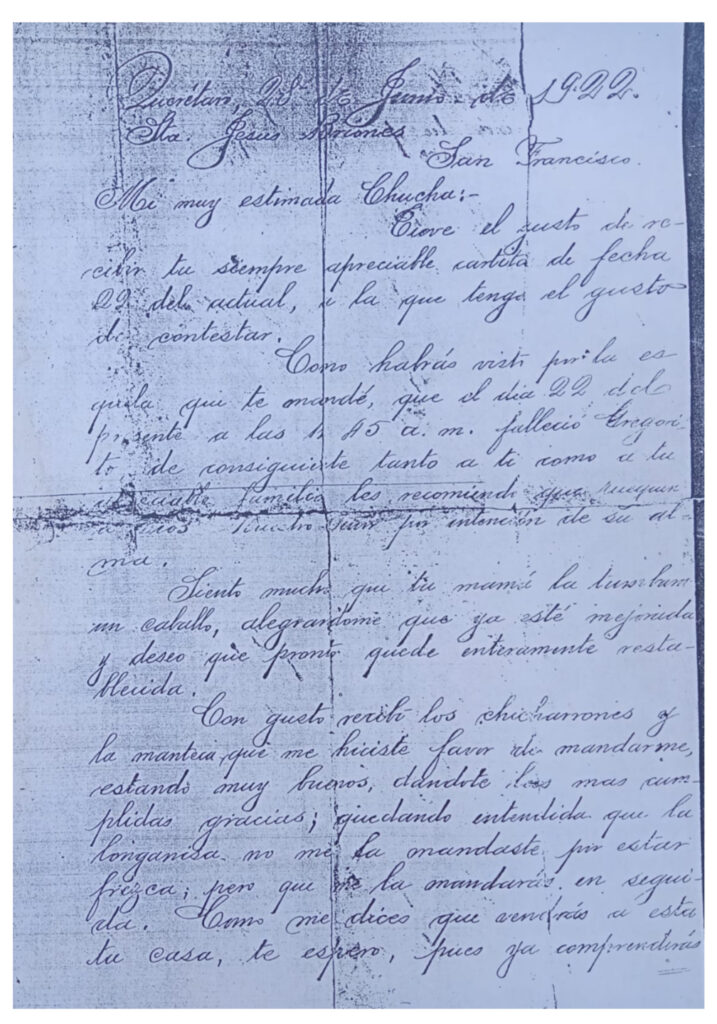 Querétaro, 28 de Junio de 1922.
Sta. Jesus Briones
San Francisco.
Mi muy estimada Chucha:-
Tuve el gusto de re-
cibir tu siempre apreciable cartita de fecha
22 del actual, a la que tengo el gusto
de contestar.
Como habrás visto por la es
quela que te mandé, que el dia 22 del
presente a las 11 45 a. m. falleció Gregori
to de consiguiente tanto a ti como a tu
apreciable familia les recomiendo que rueguen
a Dios Nuestro Señor por intención de su al-
ma.
Siento mucho que tu mamá la tumbara
un caballo, alegrandome que ya esté mejorada
y deseo que pronto quede enteramente resta-
blecida.
Con gusto recibí los chicharrones y
la manteca que me hiciste favor de mandarme,
estando muy buenos, dandote las mas cum-
plidas gracias; quedando entendida que la
longanisa no me la mandaste por estar
frezca; pero que me la mandarás en segui-
da. Como me dices que vendrás a esta
tu casa, te espero, pues ya comprendirás